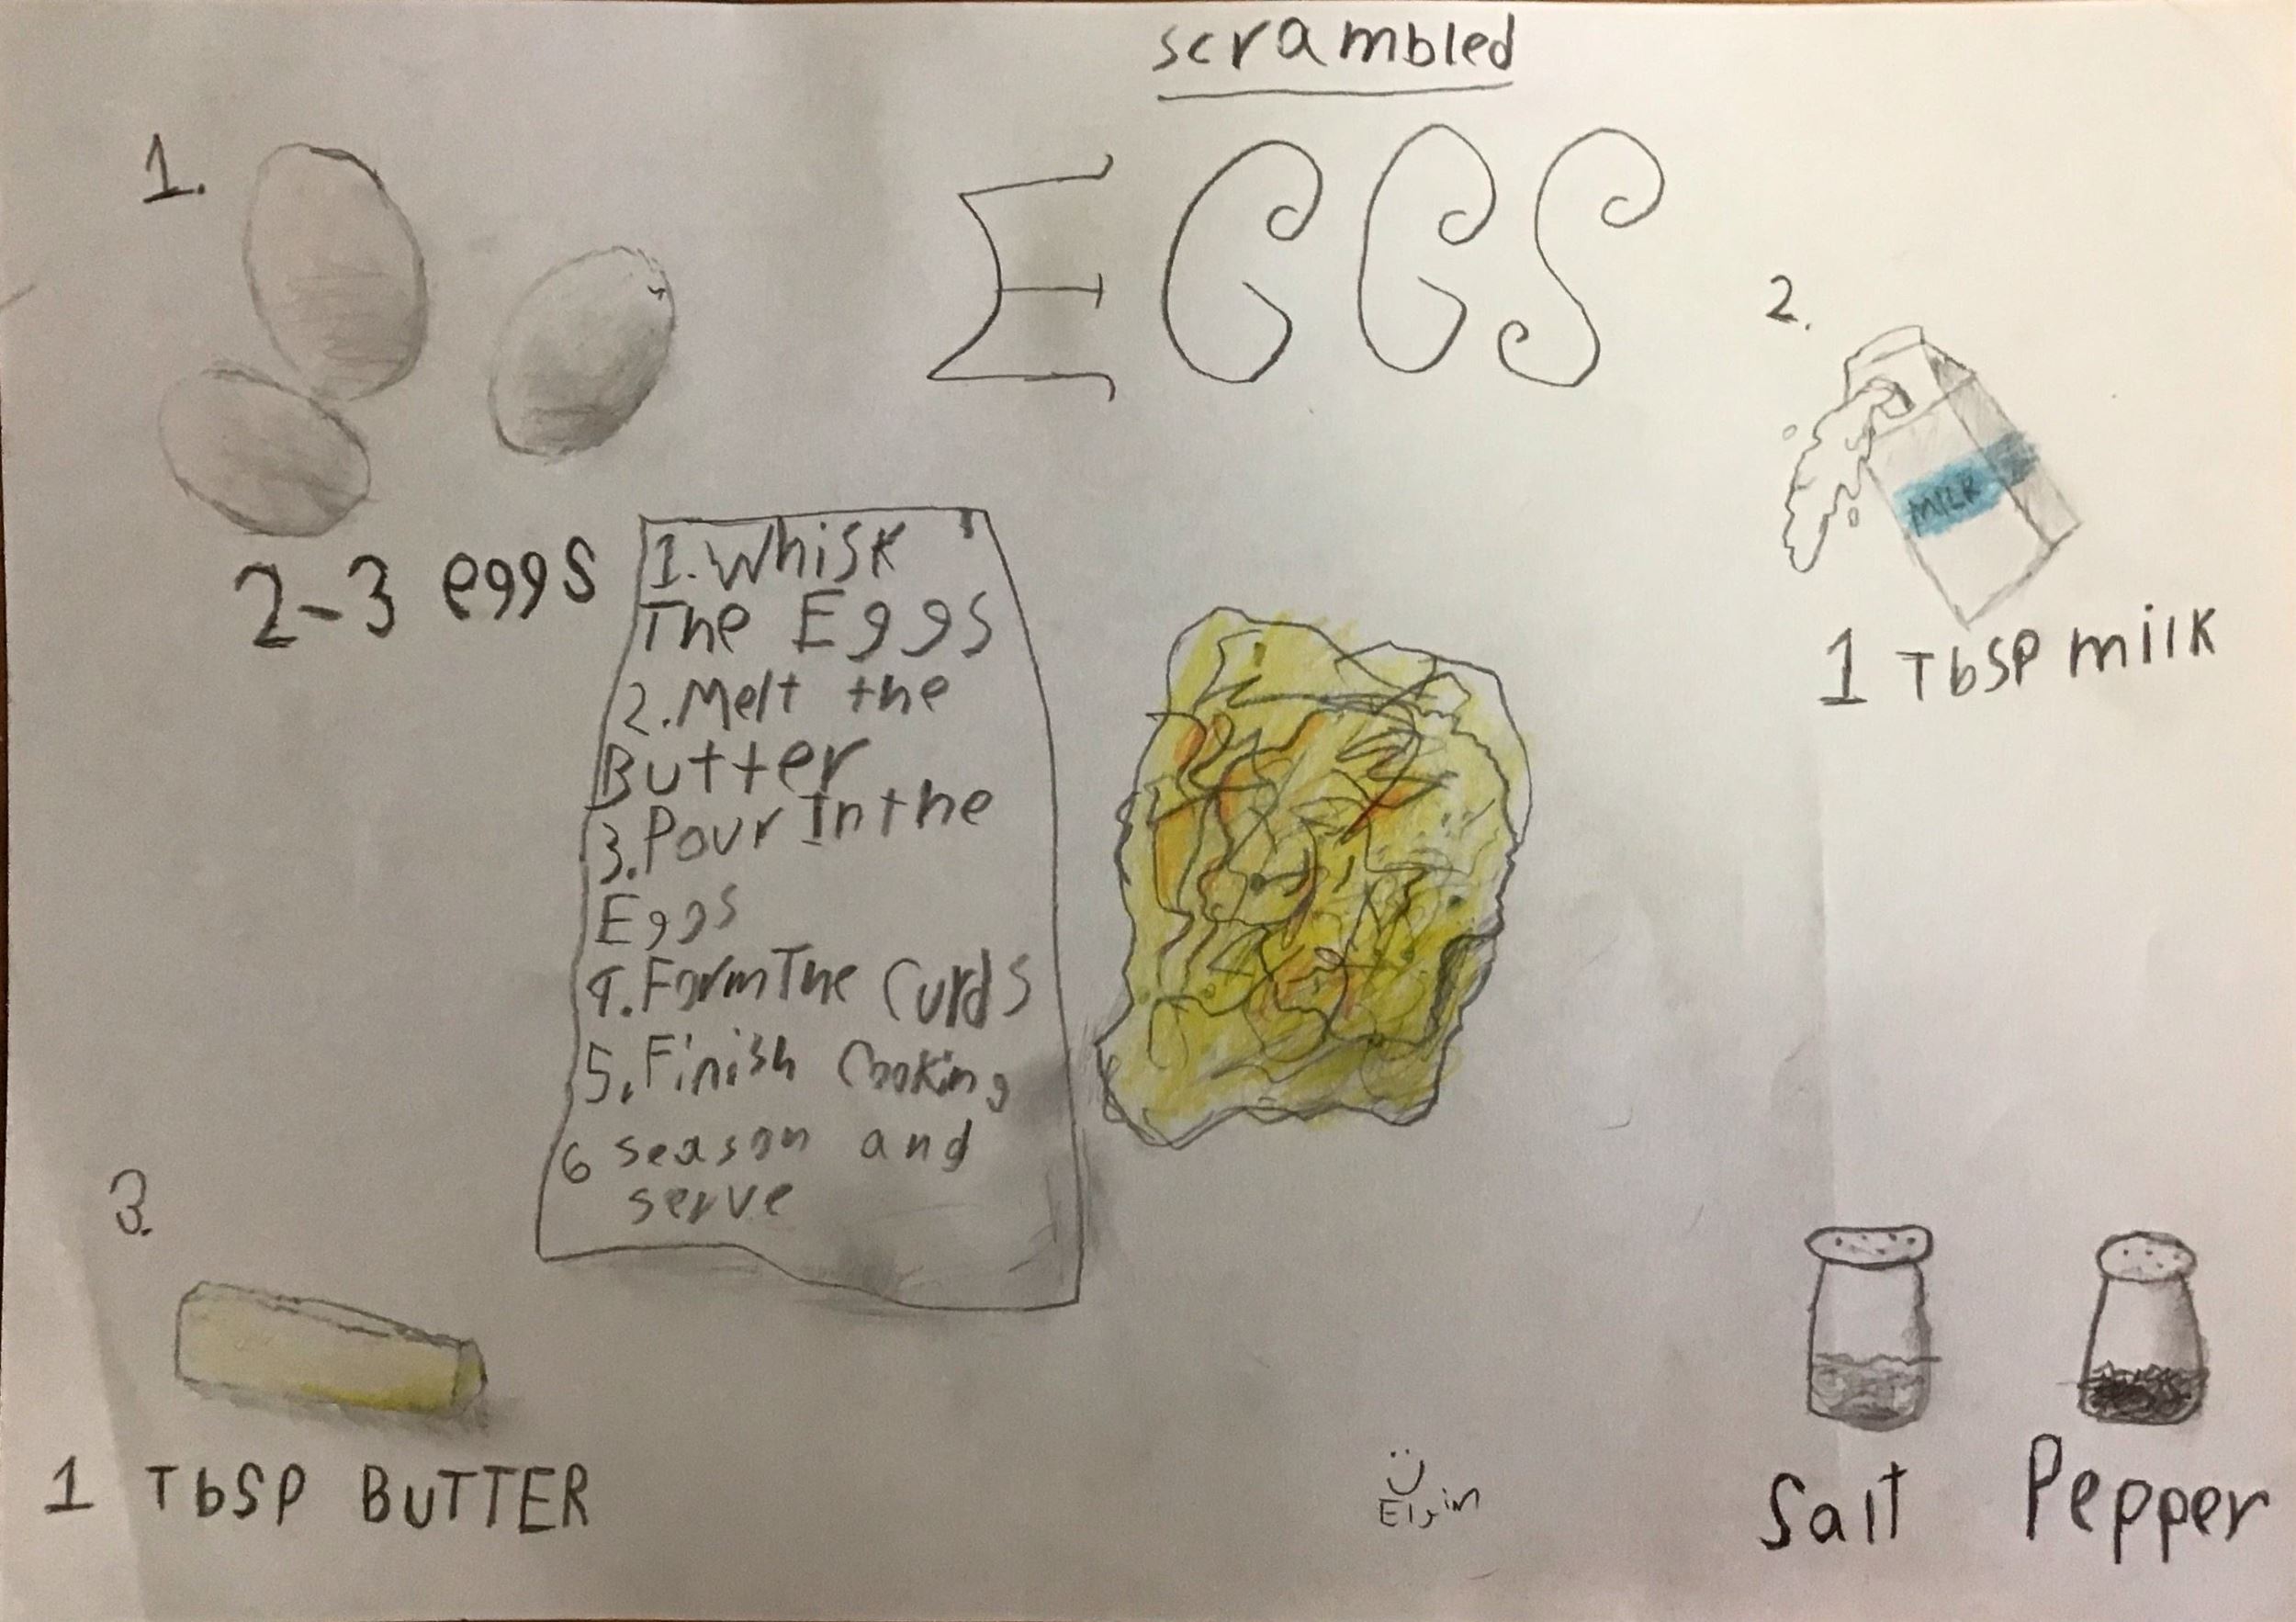 scrambled
EGGS
1.
2-3 eggs
2.
MILK
1 TbSP milk
1. Whisk
The Eggs
2. Melt the
Butter
3. Pour In the
Eggs
4. Form The Curds
5. Finish Cooking
6 season and
serve
3.
1 TbSP BuTTER
Salt
Pepper